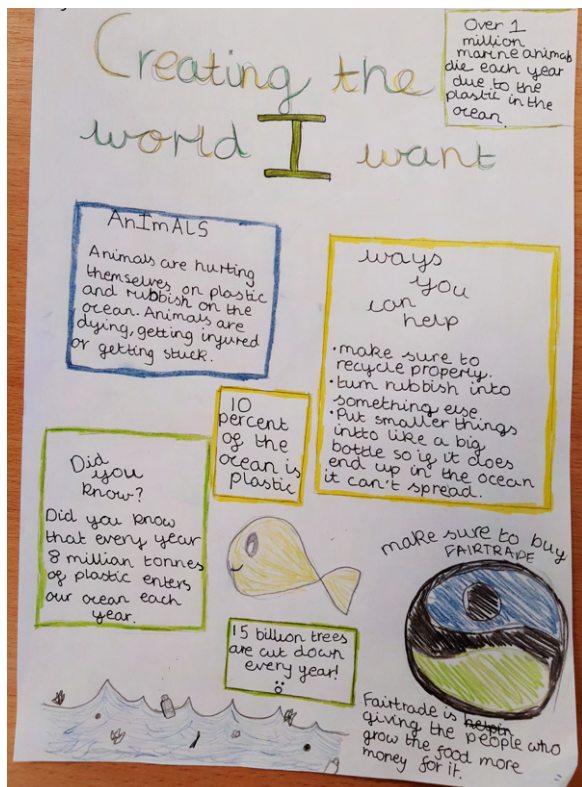 Creating the
world I want
Over 1
million
marine animals
die each year
due to the
plastic in the
ocean.
AnImALS
Animals are hurting
themselves on plastic
and rubbish on the
ocean. Animals are
dying, getting injured
or getting stuck.
ways
you
can
help
• make sure to
recycle properly.
• turn rubbish into
something else.
• Put smaller things
intto like a big
bottle so if it does
end up in the ocean
it can't spread.
10
percent
of the
ocean is
plastic
Did
you
know?
Did you know
that every year
8 million tonnes
of plastic enters
our ocean each
year.
make sure to buy
FAIRTRADE
15 billion trees
are cut down
every year!
Fairtrade is helpin
giving the people who
grow the food more
money for it.